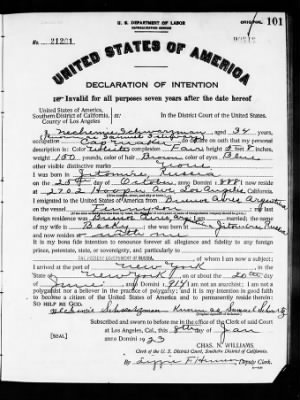 U. S. DEPARTMENT OF LABOR
NATURALIZATION SERVICE
ORIGINAL 101
No. 21201
UNITED STATES OF AMERICA
DECLARATION OF INTENTION
Invalid for all purposes seven years after the date hereof
United States of America,
Southern District of California, ss:
County of Los Angeles
In the District Court of the United States.
I, Nechemie Schwarzman, aged 34 years,
occupation Cap maker, do declare on oath that my personal
description is: Color White, complexion Fair, height 5 feet 8 inches,
weight 150 pounds, color of hair Brown, color of eyes Blue
other visible distinctive marks
I was born in Jitomire, Russia
on the 25th day of October, anno Domini 1888; I now reside
at 2202 Hooper Ave Los Angeles, California.
I emigrated to the United States of America from Buenos Aires Argentina
on the vessel; my last
foreign residence was Buenos Aires Argentina; I am married; the name
of my wife is Becky; she was born at Jitomire, Russia
and now resides at with me
It is my bona fide intention to renounce forever all allegiance and fidelity to any foreign
prince, potentate, state, or sovereignty, and particularly to
of whom I am now a subject;
I arrived at the port of New York, in the
State of New York, on or about the 20 day
of June, anno Domini 1914; I am not an anarchist; I am not a
polygamist nor a believer in the practice of polygamy; and it is my intention in good faith
to become a citizen of the United States of America and to permanently reside therein:
SO HELP ME GOD.
Subscribed and sworn to before me in the office of the Clerk of said Court
at Los Angeles, Cal., this 8th day of Jan
anno Domini 1923
[SEAL]
CHAS. N. WILLIAMS,
Clerk of the U. S. District Court, Southern District of California.
By Deputy Clerk.